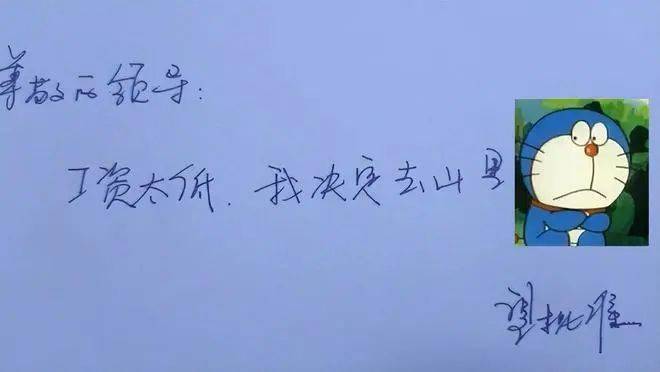 尊敬的领导:
工资太低.我决定去山里
望批准